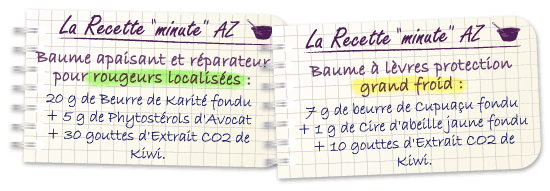 La Recette "minute" AZ
Baume apaisant et réparateur
pour rougeurs localisées :
20 g de Beurre de Karité fondu
+ 5 g de Phytostérols d'Avocat
+ 30 gouttes d'Extrait CO2 de
Kiwi.
La Recette "minute" AZ
Baume à lèvres protection
grand froid :
7 g de beurre de Cupuaçu fondu
+ 1 g de Cire d'abeille jaune fondu
+ 10 gouttes d'Extrait CO2 de
Kiwi.